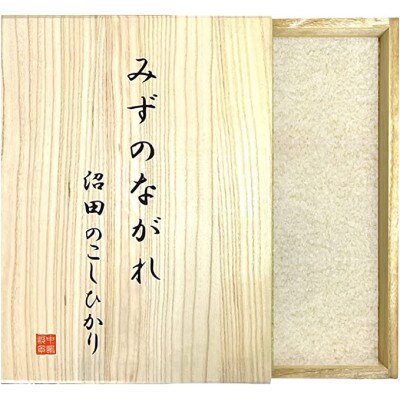 みずのながれ
沼田のこしひかり